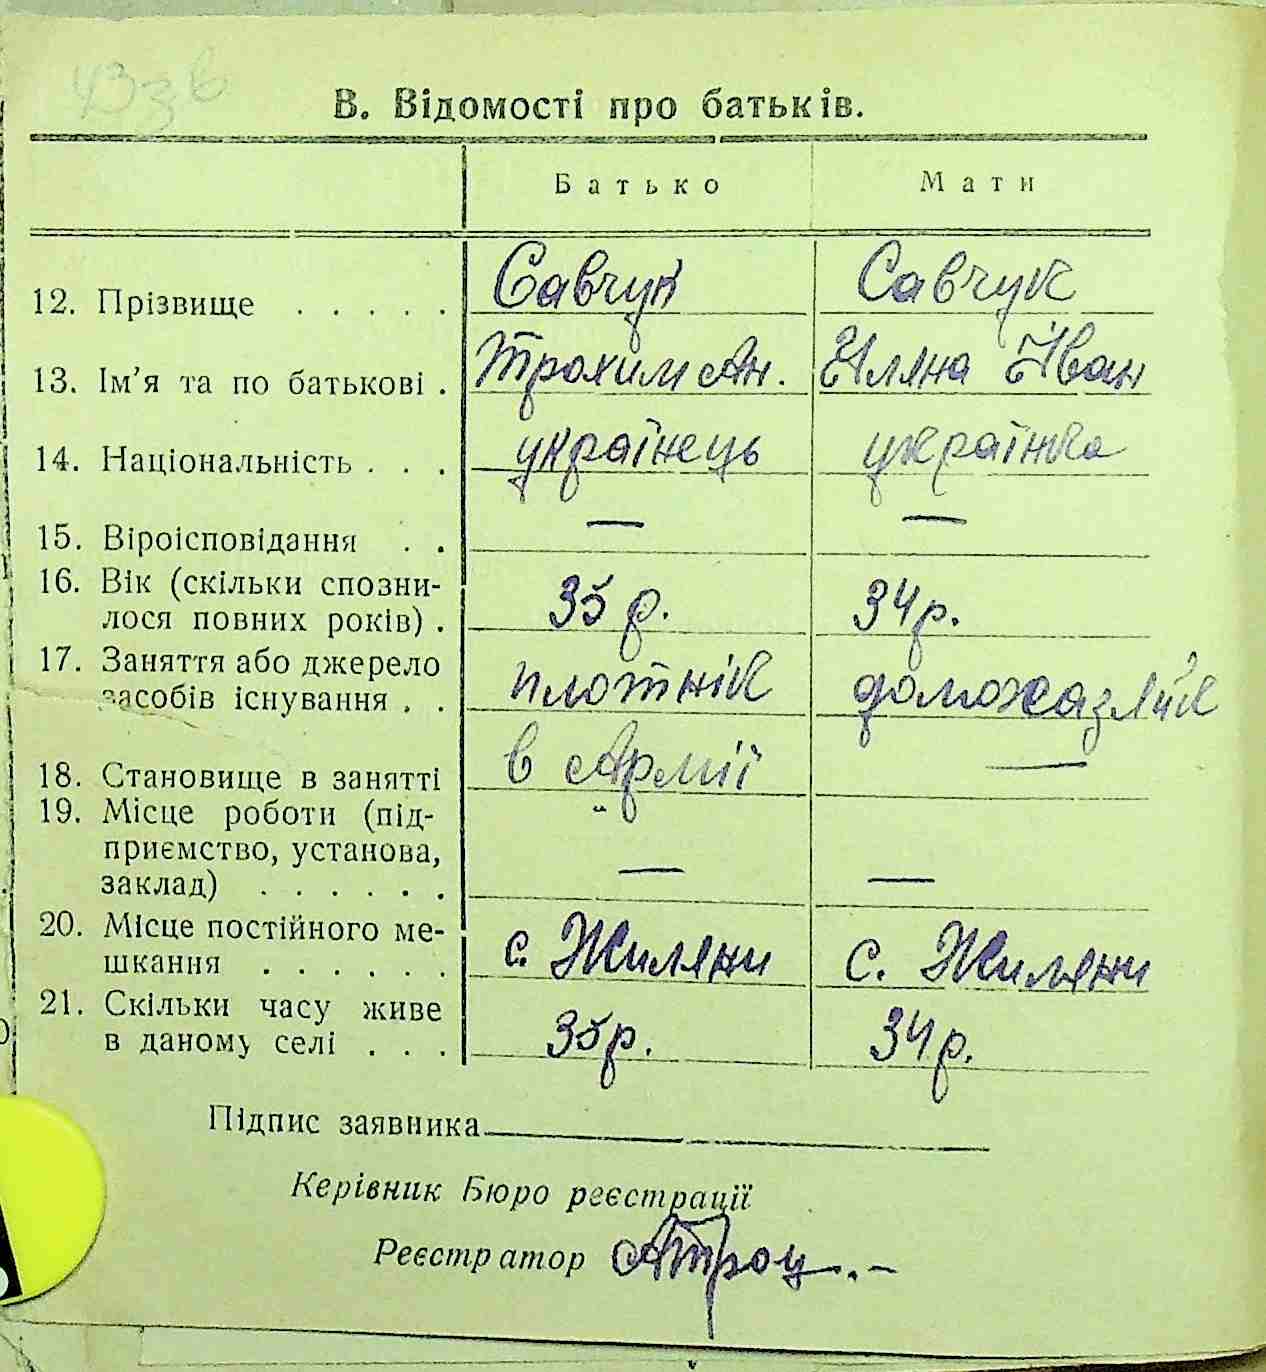 43зв
В. Відомості про батьків.
Батько Мати
12. Прізвище . . . . . Савчук Савчук
13. Ім’я та по батькові . Трохим Ан. Иляна Іван
14. Національність . . . українець українка
15. Віроісповідання . . — —
16. Вік (скільки спозни-
лося повних років) . 35 р. 34 р.
17. Заняття або джерело
засобів існування . . плотнік домохазяйк
18. Становище в занятті в Армії —
19. Місце роботи (під-
приємство, установа,
заклад) . . . . . . — —
20. Місце постійного ме-
шкання . . . . . . с. Жиляни с. Жиляни
21. Скільки часу живе
в даному селі . . . 35 р. 34 р.
Підпис заявника
Керівник Бюро реєстрації
Реєстратор